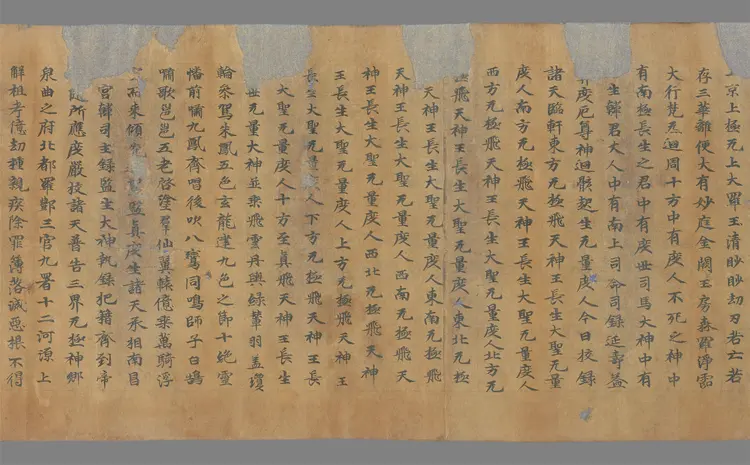 京上極无上大羅玉清眇眇刧刃若亡若
存三華離便大有妙庭金闕玉房森羅淨霐
大行梵炁迴周十方中有度人不死之神中
有南極長生之君中有度世司馬大神中有
生韓君大人中有南上司命司錄延壽益
度厄尊神迴骸起生无量度人今日挍錄
諸天臨軒東方无極飛天神王長生大聖无量
度人南方无極飛天神王長生大聖无量度人
西方无極飛天神王長生大聖无量度人北方无
極飛天神王長生大聖无量度人東北无極
天神王長生大聖无量度人東南无極飛
天神王長生大聖无量度人西南无極飛天
神王長生大聖无量度人西北无極飛天神
王長生大聖无量度人上方无極飛天神王
長生大聖无量度人下方无極飛天神王長
大聖无量度人十方至真飛天神王長生
世无量大神並乘飛雲丹輿綠輦羽蓋瓊
輪參駕朱鳳五色玄龍建九色之節十絕靈
幡前嘯九鳳齊唱後吹八鸞同鳴師子白鵠
嘯歌邕邕五老啓塗群仙翼轅億乘萬騎浮
而來傾監真度生諸天丞相南昌
宮韓司主錄監生大神執錄把籍齊到帝
隨所應度嚴挍諸天普告三界无極神鄉
泉曲之府北都羅酆三官九署十二河源上
解祖考億劫種親疾除罪簿落滅惡根不得